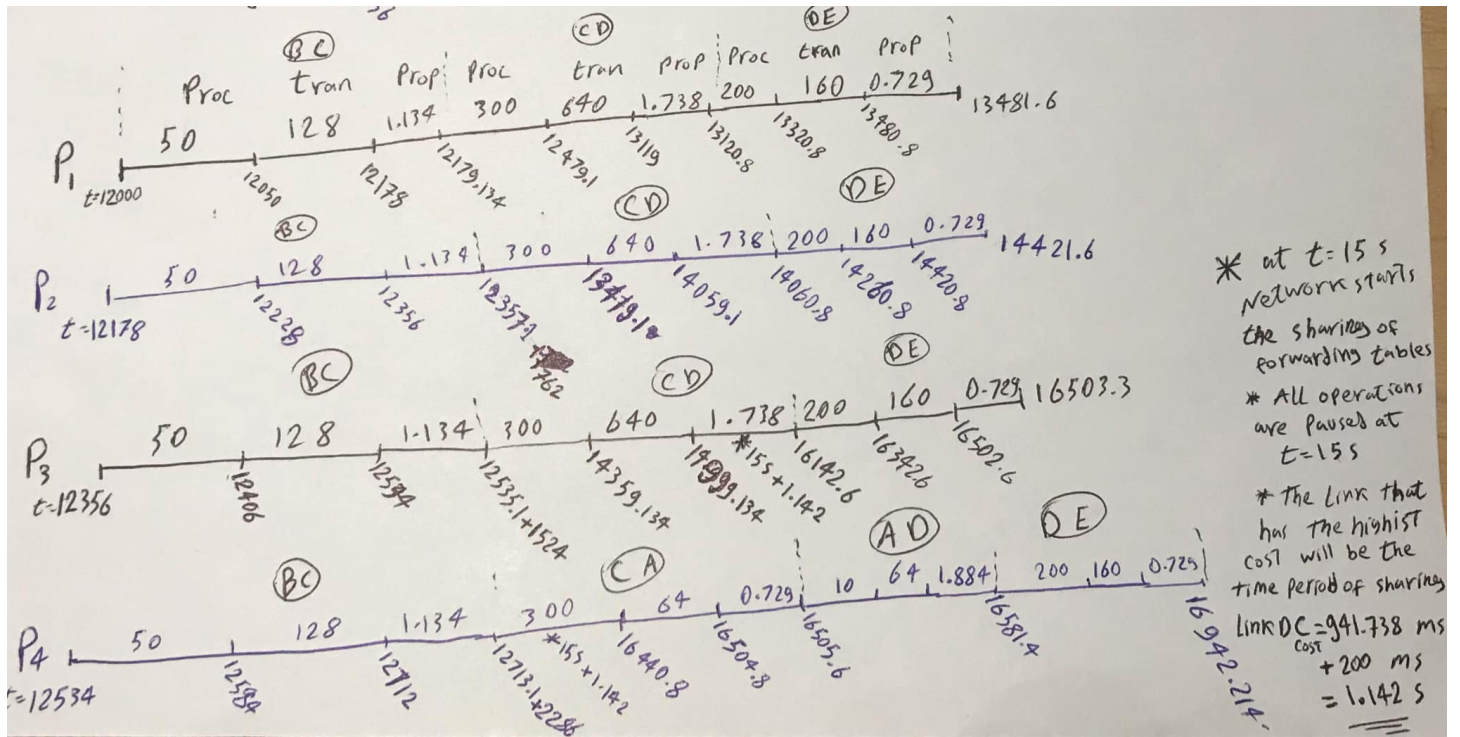 56
BC CD DE
Proc tran Prop Proc tran prop Proc tran Prop
P1 50 128 1.134 300 640 1.738 200 160 0.729 13481.6
t=12000 12050 12178 12179.134 12479.1 13119 13120.8 13320.8 13480.8
BC CD DE
P2 50 128 1.134 300 640 1.738 200 160 0.729 14421.6
t=12178 12228 12356 13479.1 14059.1 14060.8 14260.8 14420.8
762
BC CD DE
P3 50 128 1.134 300 640 1.738 200 160 0.729 16503.3
t=12356 12406 12535.1+1524 14359.134 *15s+1.142 16142.6 16342.6 16502.6
BC CA AD DE
P4 50 128 1.134 300 64 0.729 10 64 1.884 200 160 0.729
t=12534 12584 12712 12713.1+2286 *15s+1.142 16440.8 16504.8 16505.6 16581.4 16942.214
* at t=15 s
Network starts
the sharing of
forwarding tables
* All operations
are Paused at
t=15 s
* The Link that
has the highist
cost will be the
time period of sharing
Link DC=941.738 ms
cost
+200 ms
=1.142 s